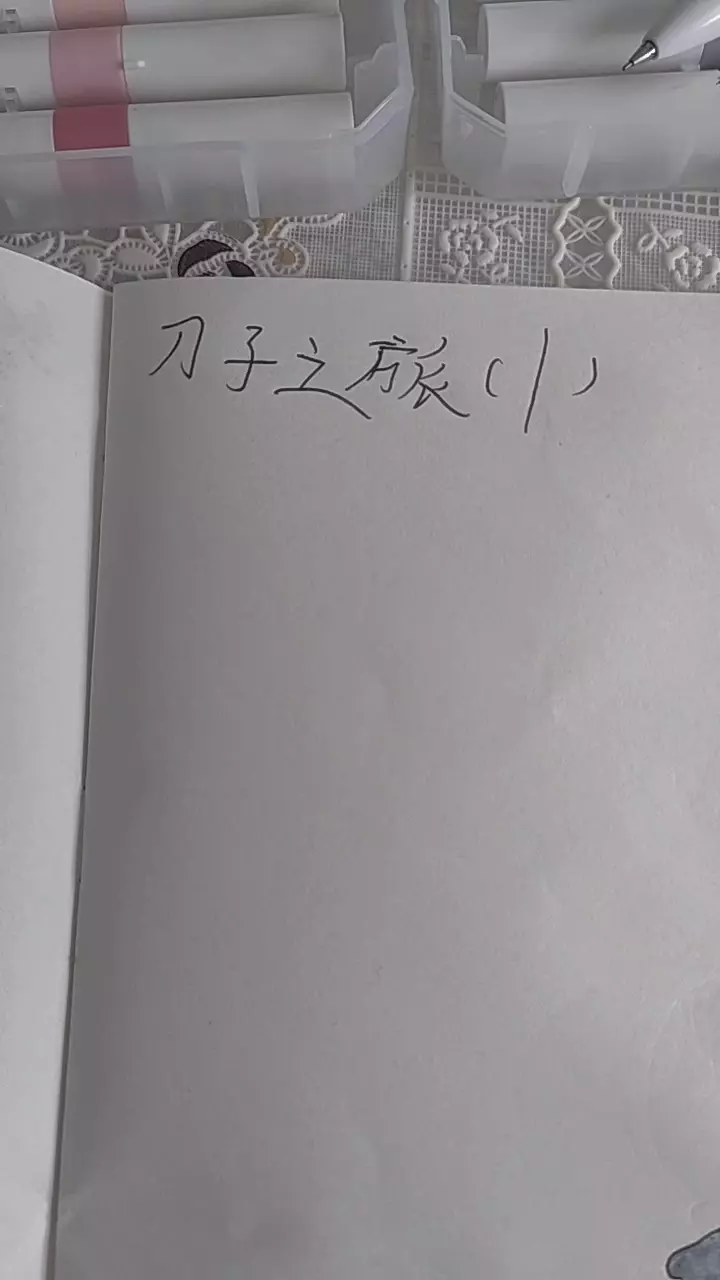 刀子之旅(1)